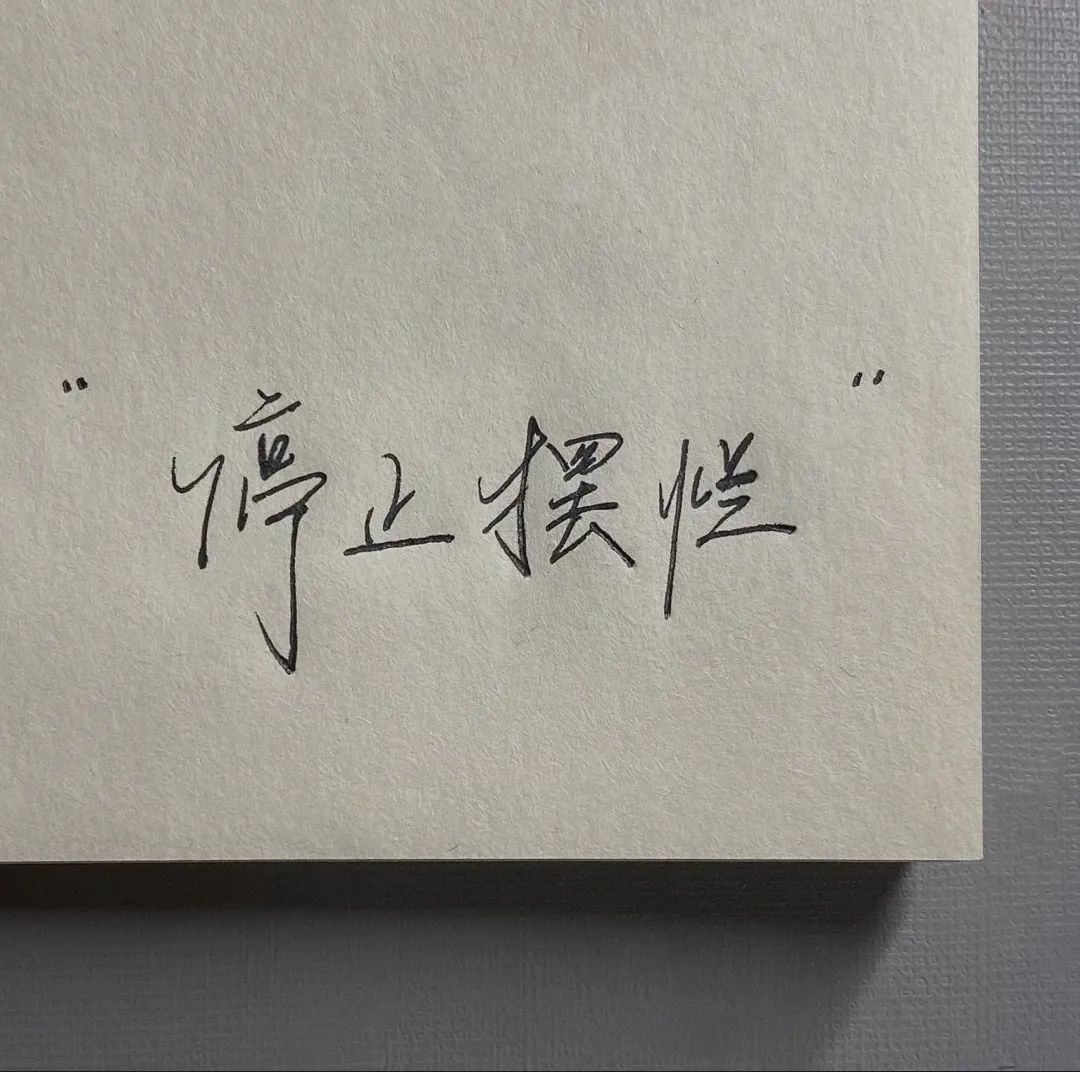 "停止摆烂"